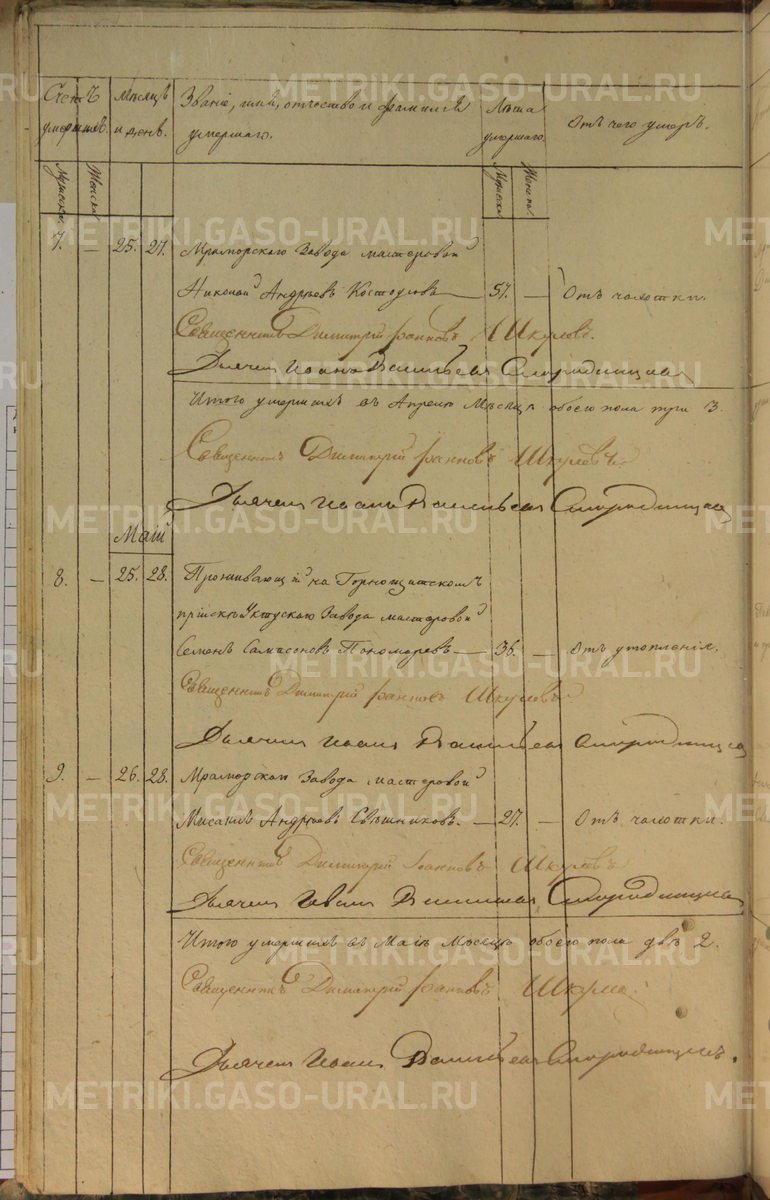 Счетъ умершихъ.
Мужеска.
Женска.
Мѣсяцъ и день.
Званіе, имя, отчество и фамилія умершаго.
Лѣта умершаго.
Мужеска
Женска.
Отъ чего умеръ.
7. — 25. 27. Мраморскаго Завода мастеровой
Николай Андреевъ Костоусовъ — 57. — Отъ чахотки.
Священникъ Димитрій Іоанновъ Шкуловъ.
Дьячекъ Иоанъ Васильевъ Смородинцевъ
Итого умершихъ въ Апрелѣ Мѣсяцѣ обоего пола три 3.
Священникъ Димитрій Іоанновъ Шкуловъ.
Дьячекъ Иоанъ Васильевъ Смородинцевъ
Маій
8. — 25. 28. Проживающій на Горнощитскомъ
пріискѣ Уктускаго Завода мастеровой
Семенъ Самсоновъ Пономаревъ — 36. — Отъ утопленія.
Священникъ Димитрій Іоанновъ Шкуловъ
Дьячекъ Иоанъ Васильевъ Смородинцевъ
9. — 26. 28. Мраморскаго Завода мастеровой
Мисаилъ Андреевъ Свѣшниковъ. — 27. — Отъ чахотки.
Священникъ Димитрій Іоанновъ Шкуловъ
Дьячекъ Иванъ Васильевъ Смородинцевъ
Итого умершихъ въ Маіѣ Мѣсяцѣ обоего пола двѣ 2.
Священникъ Димитрій Іоанновъ Шкуловъ.
Дьячекъ Иоанъ Васильевъ Смородинцевъ.
METRIKI.GASO-URAL.RU